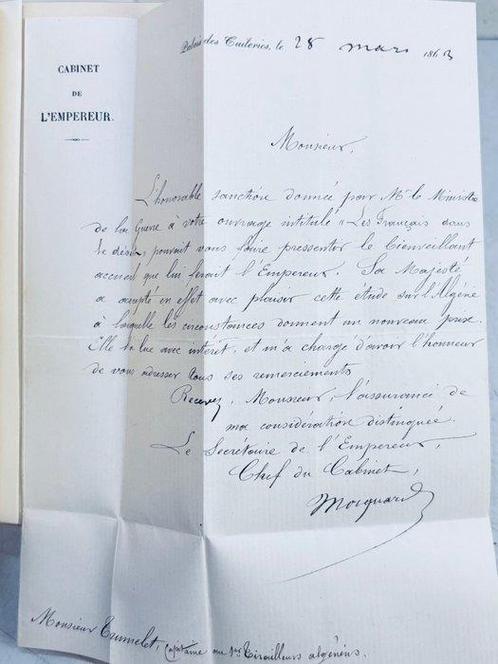 Palais des Tuileries, le 28 mars 1863
CABINET
DE
L'EMPEREUR.
Monsieur,
L'honorable sanction donnée par Mr le Ministre
de la Guerre à votre ouvrage intitulé "Les Français dans
le désert, pouvait vous faire pressentir le bienveillant
accueil que lui ferait l'Empereur. Sa Majesté
a accepté en effet avec plaisir cette étude sur l'Algérie
à laquelle les circonstances donnent un nouveau prix.
Elle l'a lue avec intérêt, et m'a chargé d'avoir l'honneur
de vous adresser tous ses remerciements
Recevez, Monsieur, l'assurance de
ma considération distinguée.
Le Secrétaire de l'Empereur,
Chef du Cabinet,
Mocquard
Monsieur Trumelet, Capitaine au 1er Tirailleurs algériens.